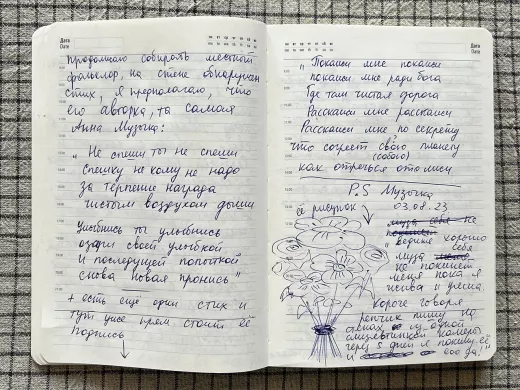 Дата
Date
Продолжаю собирать местный
фольклор, на стене обнаружен
стих, я предполагаю, что
его авторка, та самая
Анна Музычка:
„ Не спеши ты не спеши
спешку не кому не надо
за терпение награда
чистым воздухом дыши
Улыбнись ты улыбнись
озари своей улыбкой
и последующей попыткой
снова новая пронись"
+ есть ещё один стих и
тут уже прям стоит её
подпись
Дата
Date
„ Покажи мне покажи
покажи мне ради бога
Где там чистая дорога
Расскажи мне расскажи
Расскажи мне по секрету
что согреет свою планету
(собою)
как отречься ото лжи
P.S Музычка
03.08.23
её рисунок
муза себя не
" ведите хорошо
себя
муза
не покинет
меня пока я
жива и
короче говоря
репчик пишу на
стенах из одной
камеры
через 5 дней я покину её
и ооо да!"